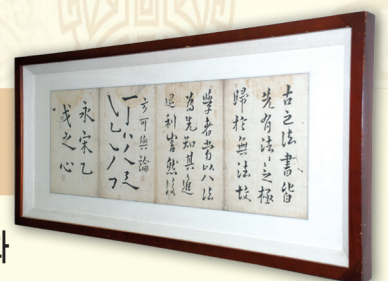 古之法書皆
先有法〻之極
歸於無法故
學者當以八法
為先知其進
退利害然後
方可與論
永宋乙
戈之心